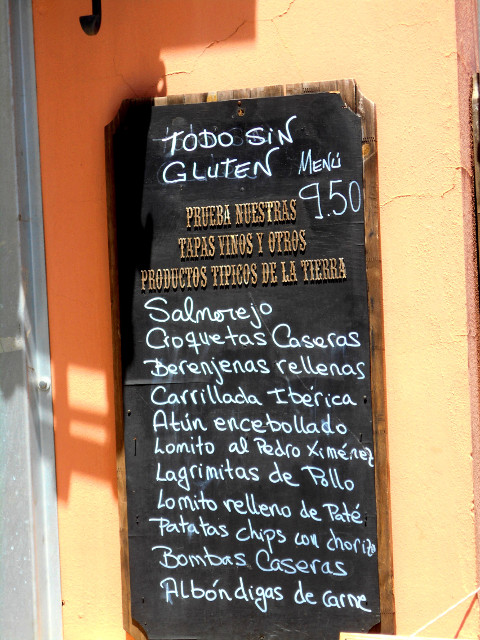 TODO SIN
GLUTEN
MENÚ
9.50
PRUEBA NUESTRAS
TAPAS VINOS Y OTROS
PRODUCTOS TIPICOS DE LA TIERRA
Salmorejo
Croquetas Caseras
Berenjenas rellenas
Carrillada Ibérica
Atún encebollado
Lomito al Pedro Ximénez
Lagrimitas de Pollo
Lomito relleno de Paté
Patatas chips con chorizo
Bombas Caseras
Albóndigas de carne